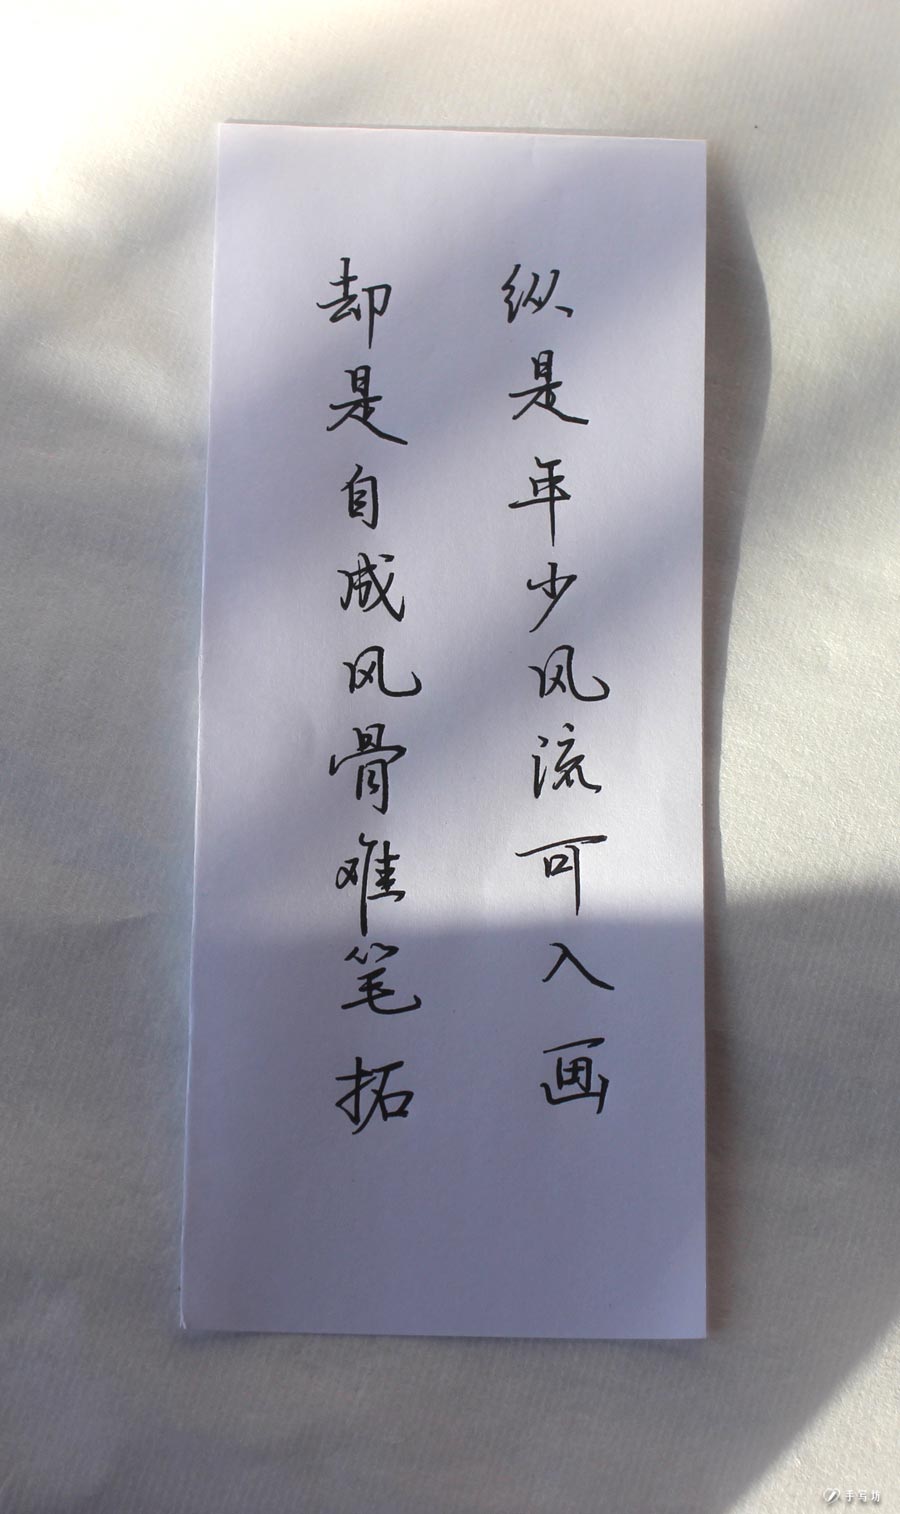 纵是年少风流可入画
却是自成风骨难笔拓
手写坊